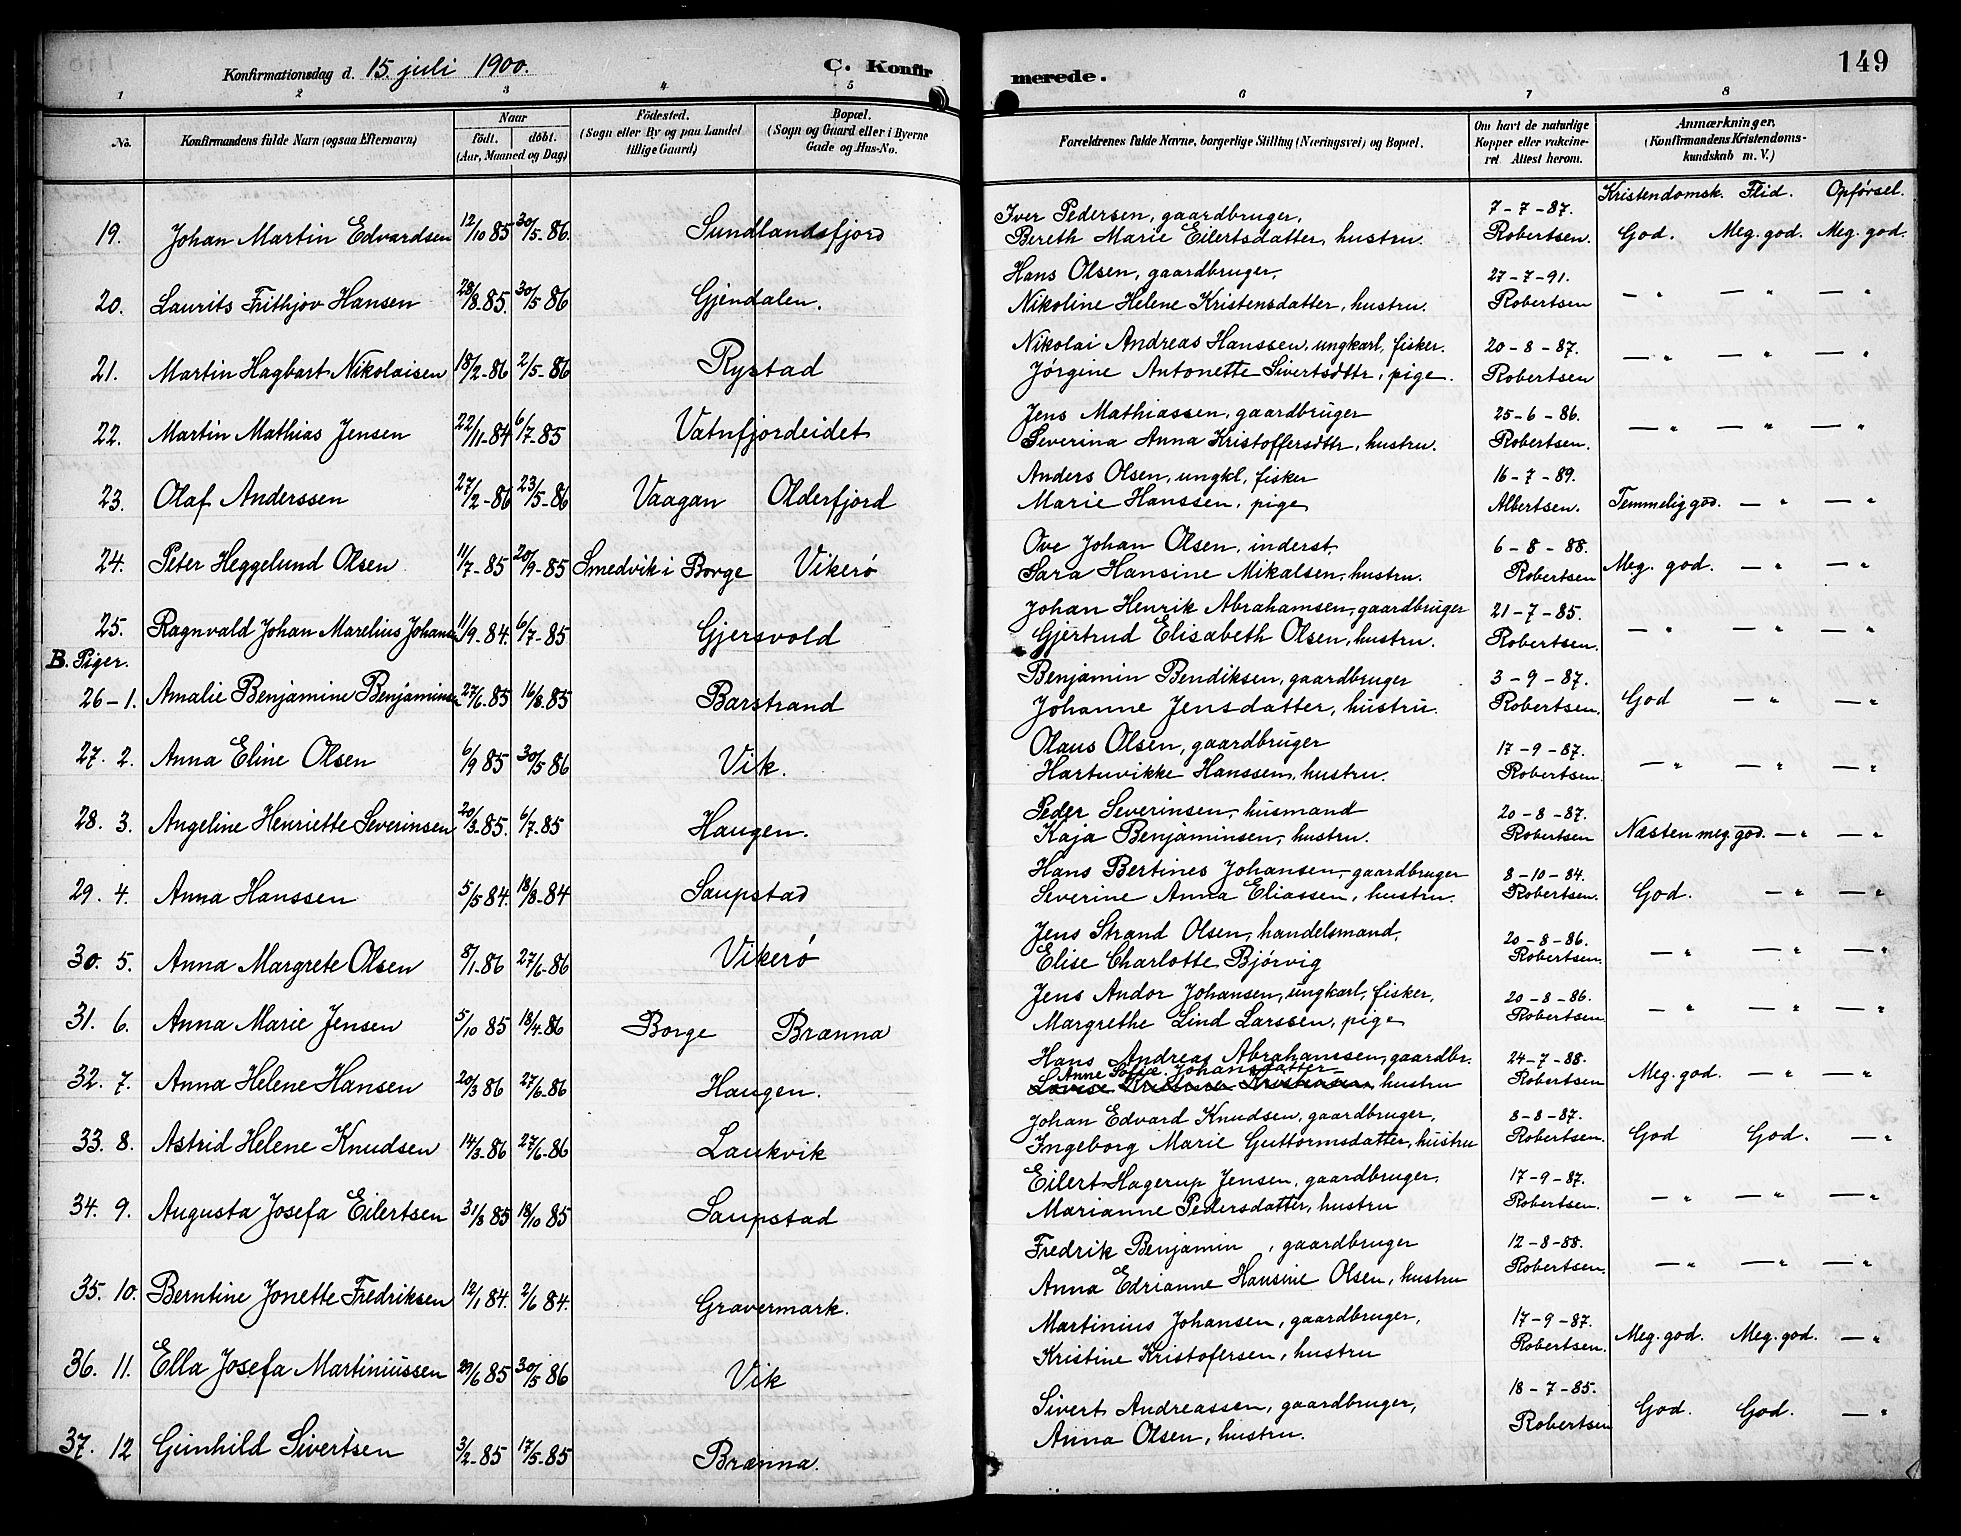 Konfirmationsdag d. 15. juli 1900. C. Konfir
merede. 149
1 2 3 4 5
6 7 8
No. Konfirmandens fulde Navn (ogsaa Efternavn) Naar født. døbt. (Aar, Maaned og Dag) Födested. (Sogn eller By og paa Landet tillige Gaard) Bopæl. (Sogn og Gaard eller i Byerne Gade og Hus-No.
Forældrenes fulde Navne, borgerlige Stilling (Næringsvei) og Bopæl. Om havt de naturlige Kopper eller vakcineret Attest herom. Anmærkninger. (Konfirmandens Kristendomskundskab m. V.)
Kristendomsk. Flid. Opførsel.
19. Johan Martin Edvardsen 12/10 85 30/5-86. Sundlandsfjord
Iver Pedersen, gaardbruger, 7-7-87.
Bereth Marie Eilertsdatter, hustru. Robertsen. God. Meg. god. Meg. god.
20. Laurits Frithjov Hansen 28/8-85. 30/5 86 Gjendalen.
Hans Olsen, gaardbruger, 27-7-91.
Nikoline Helene Kristensdatter, hustru. Robertsen — " — " — "
21. Martin Hagbart Nikolaisen 18/2-86 2/5-86 Rystad
Nikolai Andreas Hanssen, ungkarl, fisker. 20-8-87.
Jørgine Antonette Sivertsdttr, pige. Robertsen — " — " — "
22. Martin Mathias Jensen 22/11-84 6/7-85 Vatnfjordeidet
Jens Mathiassen, gaardbruger 25-6-86.
Severina Anna Kristoffersdttr, hustru. Robertsen. — " — " — "
23. Olaf Anderssen 27/2-86 23/5-86 Vaagan Olderfjord
Anders Olsen, ungkl, fisker 16-7-89.
Marie Hanssen, pige Albertsen. Temmelig god. — " — "
24. Peter Heggelund Olsen 11/7-85 20/9-85 Smedvik i Borge Vikerø
Ove Johan Olsen, inderst 6-8-88.
Sara Hansine Mikalsen, hustru. Robertsen Meg. god. — " — "
25. Ragnvald Johan Marelius Johans 11/9-84. 6/7-85 Gjersvold
Johan Henrik Abrahamsen, gaardbruger 21-7-85.
Gjertrud Elisabeth Olsen, hustru. Robertsen. — " — " — "
B. Piger.
26-1. Amalie Benjamine Benjamins 27/6-85 16/8-85 Barstrand
Benjamin Bendiksen, gaardbruger 3-9-87.
Johanne Jensdatter, hustru. Robertsen. God — " — "
27. 2. Anna Eline Olsen 6/9 85 30/5 86 Vik.
Olaus Olsen, gaardbruger 17-9-87.
Hartuvikke Hanssen, hustru. Robertsen. — " — " — "
28. 3. Angeline Henriette Severinsen 20/3-85. 6/7-85 Haugen.
Peder Severinsen, husmand 20-8-87.
Kaja Benjaminsen, hustru. Robertsen Næsten meg. god. — " — "
29. 4. Anna Hanssen 5/5 84. 18/8-84 Saupstad
Hans Bertines Johansen, gaardbruger 8-10-84.
Severine Anna Eliassen, hustru. Robertsen. God. — " — "
30. 5. Anna Margrete Olsen 8/1-86 27/6-86 Vikerø
Jens Strand Olsen, handelsmand, 20-8-86.
Elise Charlotte Bjørvig Robertsen. — " — " — "
31. 6. Anna Marie Jensen 5/10 85 18/4-86 Borge Brænna
Jens Andor Johansen, ungkarl, fisker, 20-8-86.
Margrethe Lind Larssen, pige Robertsen — " — " — "
32. 7. Anna Helene Hansen 20/3 86 27/6-86 Haugen.
Hans Andreas Abrahamssen, gaardbr. 24-7-88.
Anne Sofie Johansdatter
hustru Robertsen Meg. god. — " — "
33. 8. Astrid Helene Knudsen 14/3-86 27/6-86 Laukvik
Johan Edvard Knudsen, gaardbruger, 8-8-87.
Ingeborg Marie Guttormsdatter, hustru Robertsen. God God. — "
34. 9. Augusta Josefa Eilertsen 31/8 85 18/10 85 Saupstad
Eilert Hagerup Jensen, gaardbruger. 17-9-87.
Marianne Pedersdatter, hustru Robertsen. — " — " — "
35. 10. Berntine Jonette Fredriksen 12/1 84. 2/6 84. Gravermark.
Fredrik Benjamin , gaardbruger 12-8-88.
Anna Edrianne Hansine Olsen, hustru Robertsen. — " — " — "
36. 11. Ella Josefa Martiniussen 29/6 85 30/5 86 Vik
Martinius Johansen, gaardbruger, 17-9-87.
Kristine Kristofersen, hustru Robertsen. Meg. god. Meg. god. — "
37. 12 Gunhild Sivertsen 3/2-85 17/5-85 Brænna.
Sivert Andreassen, gaardbruger, 18-7-85.
Anna Olsen, hustru. Robertsen God. God. — "